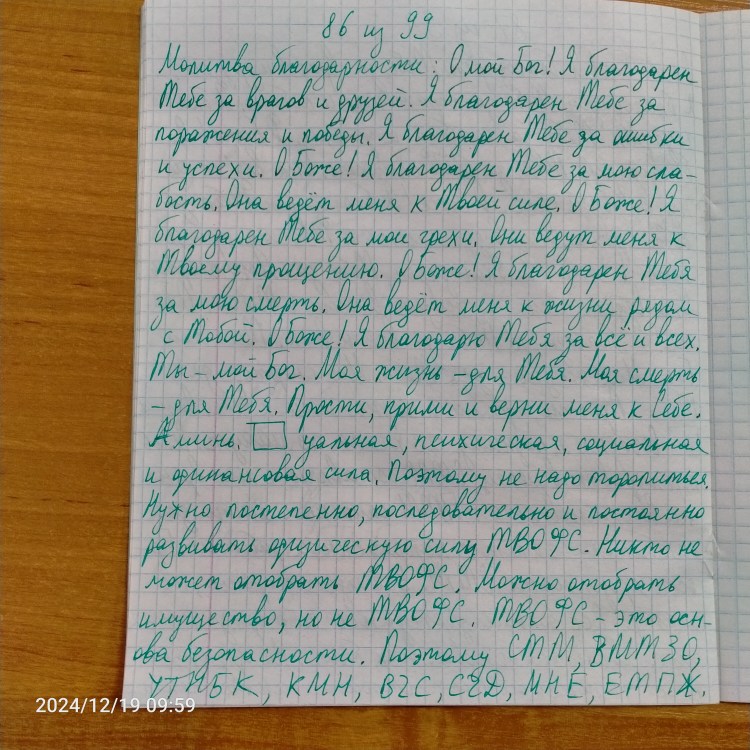 86 из 99
Молитва благодарности: О мой Бог! Я благодарен
Тебе за врагов и друзей. Я благодарен Тебе за
поражения и победы. Я благодарен Тебе за ошибки
и успехи. О Боже! Я благодарен Тебе за мою сла-
бость. Она ведёт меня к Твоей силе. О Боже! Я
благодарен Тебе за мои грехи. Они ведут меня к
Твоему прощению. О Боже! Я благодарен Тебя
за мою смерть. Она ведёт меня к жизни рядом
с Тобой. О Боже! Я благодарю Тебя за всё и всех.
Ты – мой Бог. Моя жизнь – для Тебя. Моя смерть
– для Тебя. Прости, прими и верни меня к Себе.
Аминь. уальная, психическая, социальная
и финансовая сила. Поэтому не надо торопиться.
Нужно постепенно, последовательно и постоянно
развивать физическую силу ТВОФС. Никто не
может отобрать ТВОФС. Можно отобрать
имущество, но не ТВОФС. ТВОФС – это осн-
ова безопасности. Поэтому СТМ, ВМТЗО,
УТНБК, КМН, ВЧС, СЧД, МНЁ, ЕМПЖ.
2024/12/19 09:59